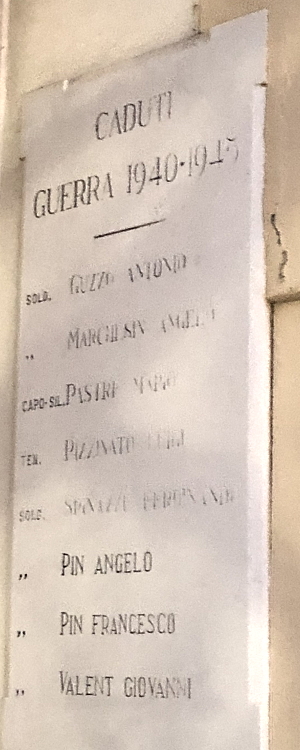 CADUTI
GUERRA 1940-1945
SOLD. GUZZO ANTONIO
„ MARCHESIN ANGELO
CAPO-SIL. PASTRE MARIO
TEN. PIZZINATO LUIGI
SOLD. FERDINANDO
„ PIN ANGELO
„ PIN FRANCESCO
„ VALENT GIOVANNI